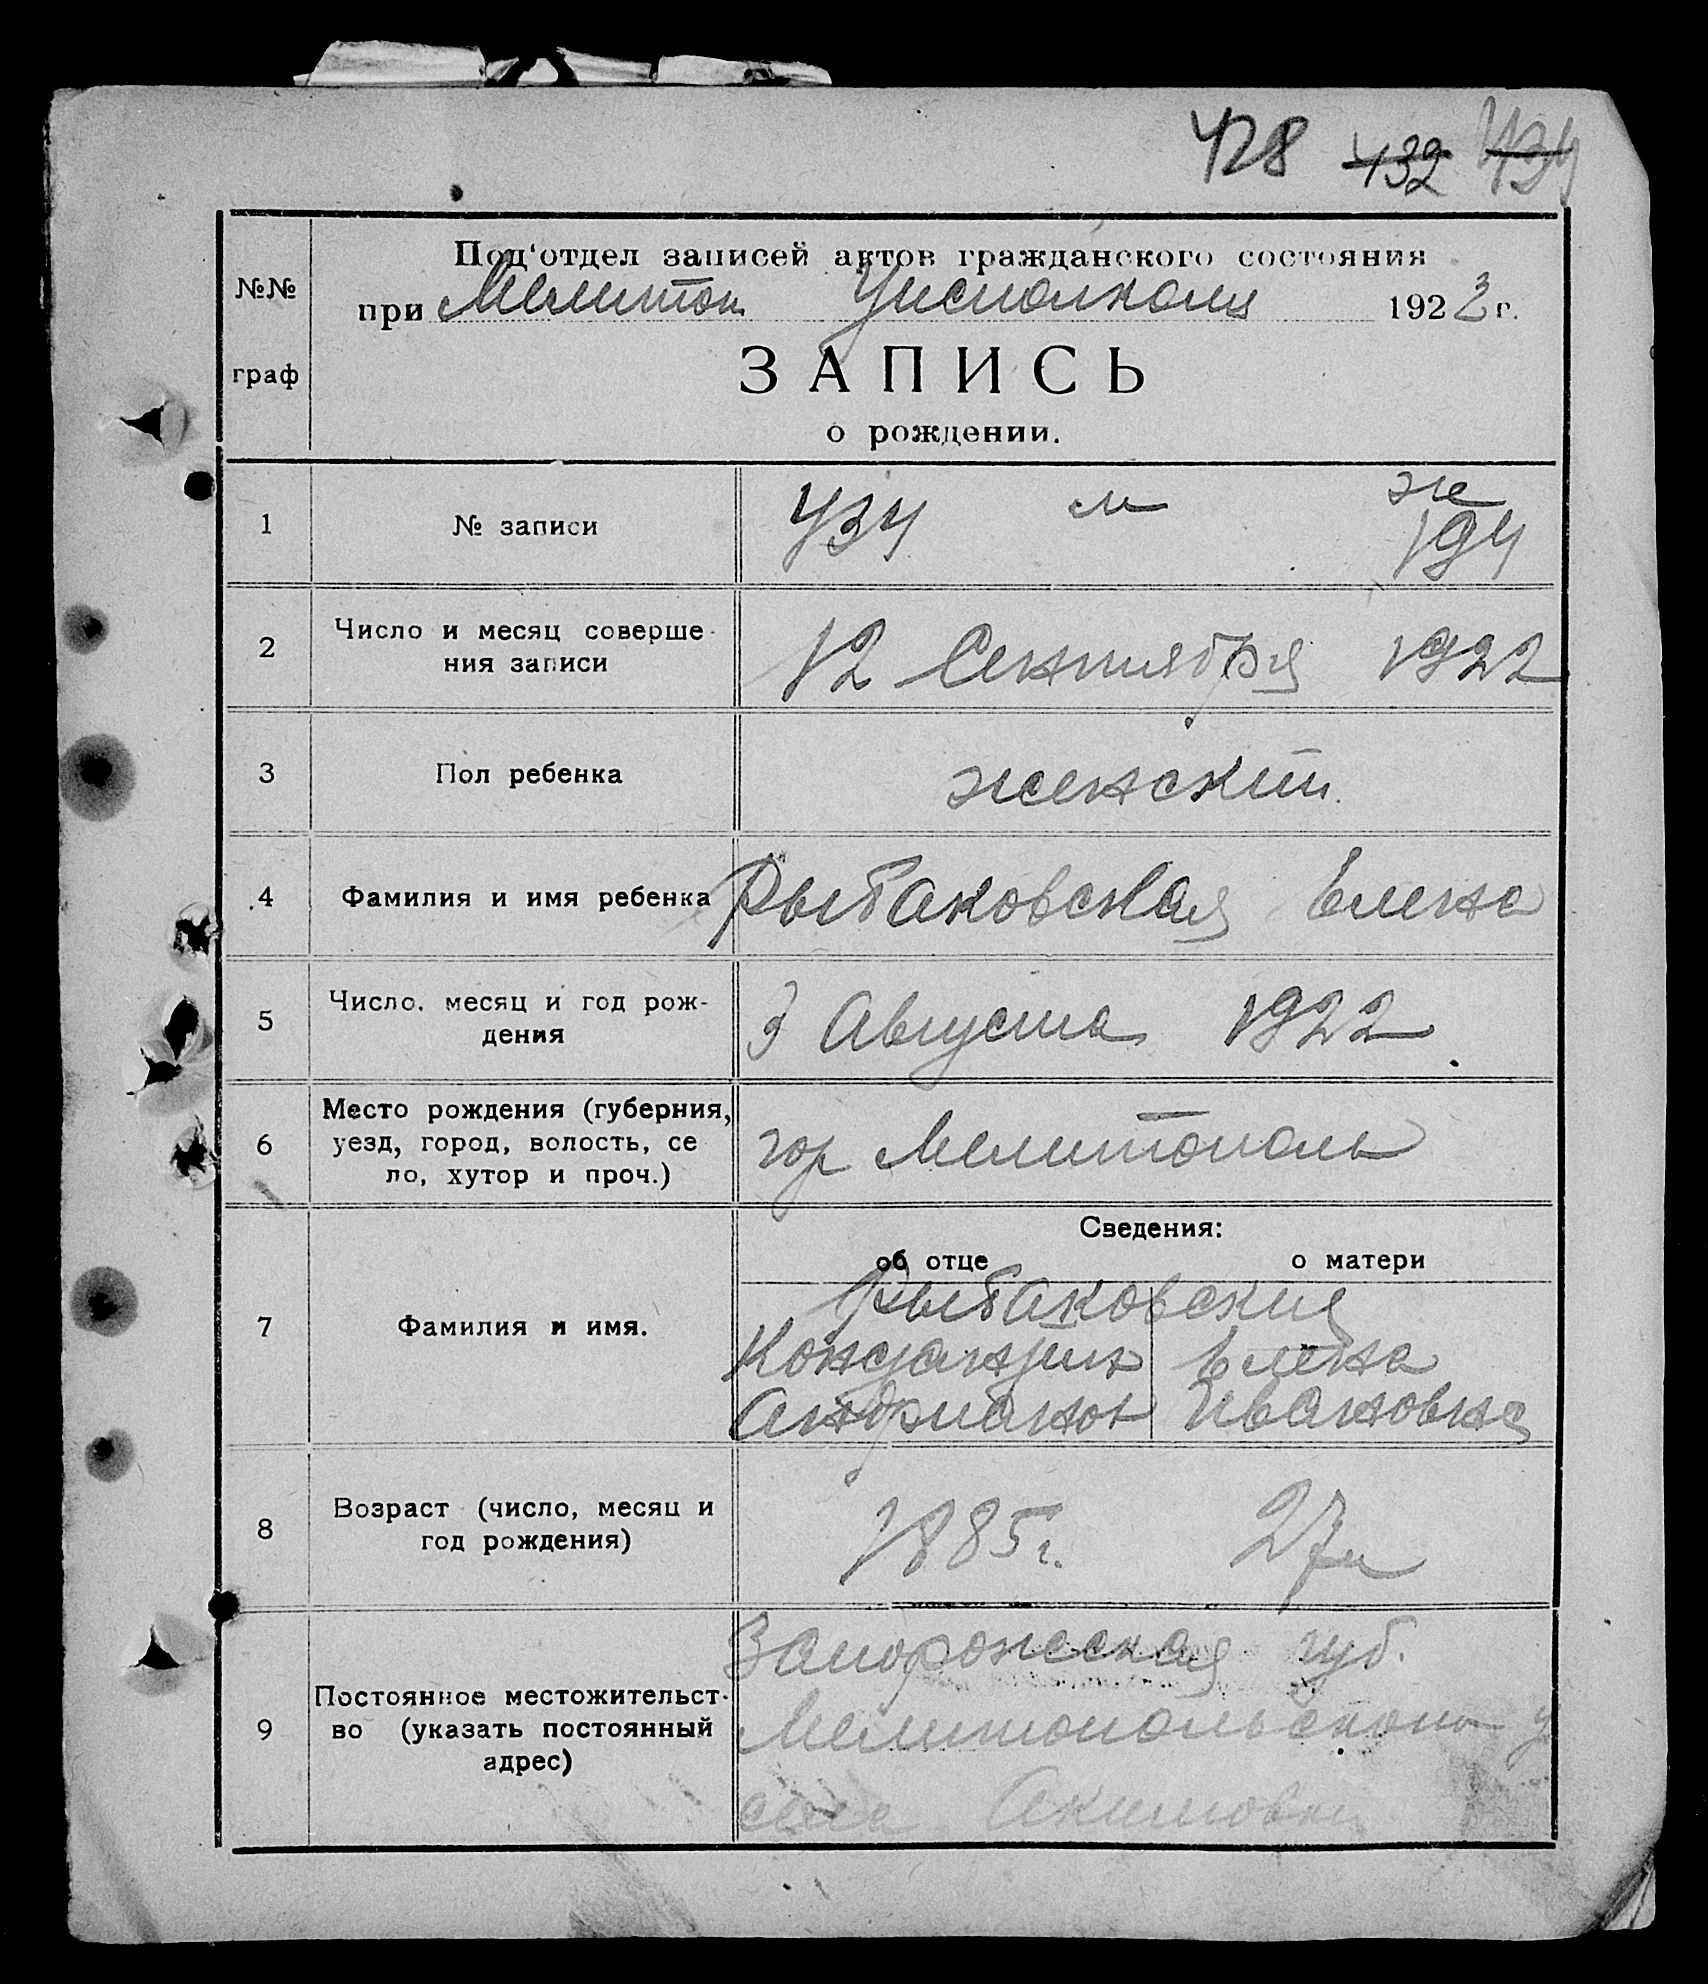 428 432 434
№№ граф
Под'отдел записей актов гражданского состояния
при Мелитоп. Уисполкоме 1923 г.
ЗАПИСЬ
о рождении.
1 № записи 434 м ж 194
2 Число и месяц соверше-
ния записи
12 Сентября 1922
3 Пол ребенка женский
4 Фамилия и имя ребенка Рыбаковская Елена
5 Число, месяц и год рож-
дения
3 Августа 1922
6 Место рождения (губерния,
уезд, город, волость, се
ло, хутор и проч.)
гор Мелитополь
Сведения:
об отце о матери
7 Фамилия и имя.
Рыбаковские
Елена
Андрианов Ивановна
8 Возраст (число, месяц и
год рождения)
1885 г. 27 л
9 Постоянное местожительст-
во (указать постоянный
адрес)
Запорожская губ.
Мелитопольского у
села Акимовки